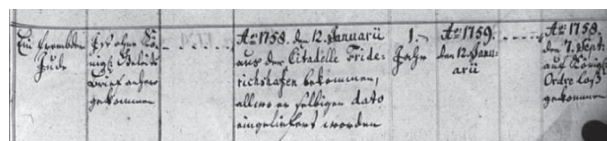 Ein frembder
Jude
Ist ohne Kö-
nigl: Geleits
Brief anhero
gekommen
Aō 1758. den 12. Januarii
aus der Citadelle Fride-
richshafen bekommen,
allwo er selbigen dato
eingeliefert worden
1.
Jahr
Aō 1759.
den 12. Janu-
arii
Aō 1758.
den 7. Sept:
auf Königl:
Ordre loß
gekommen